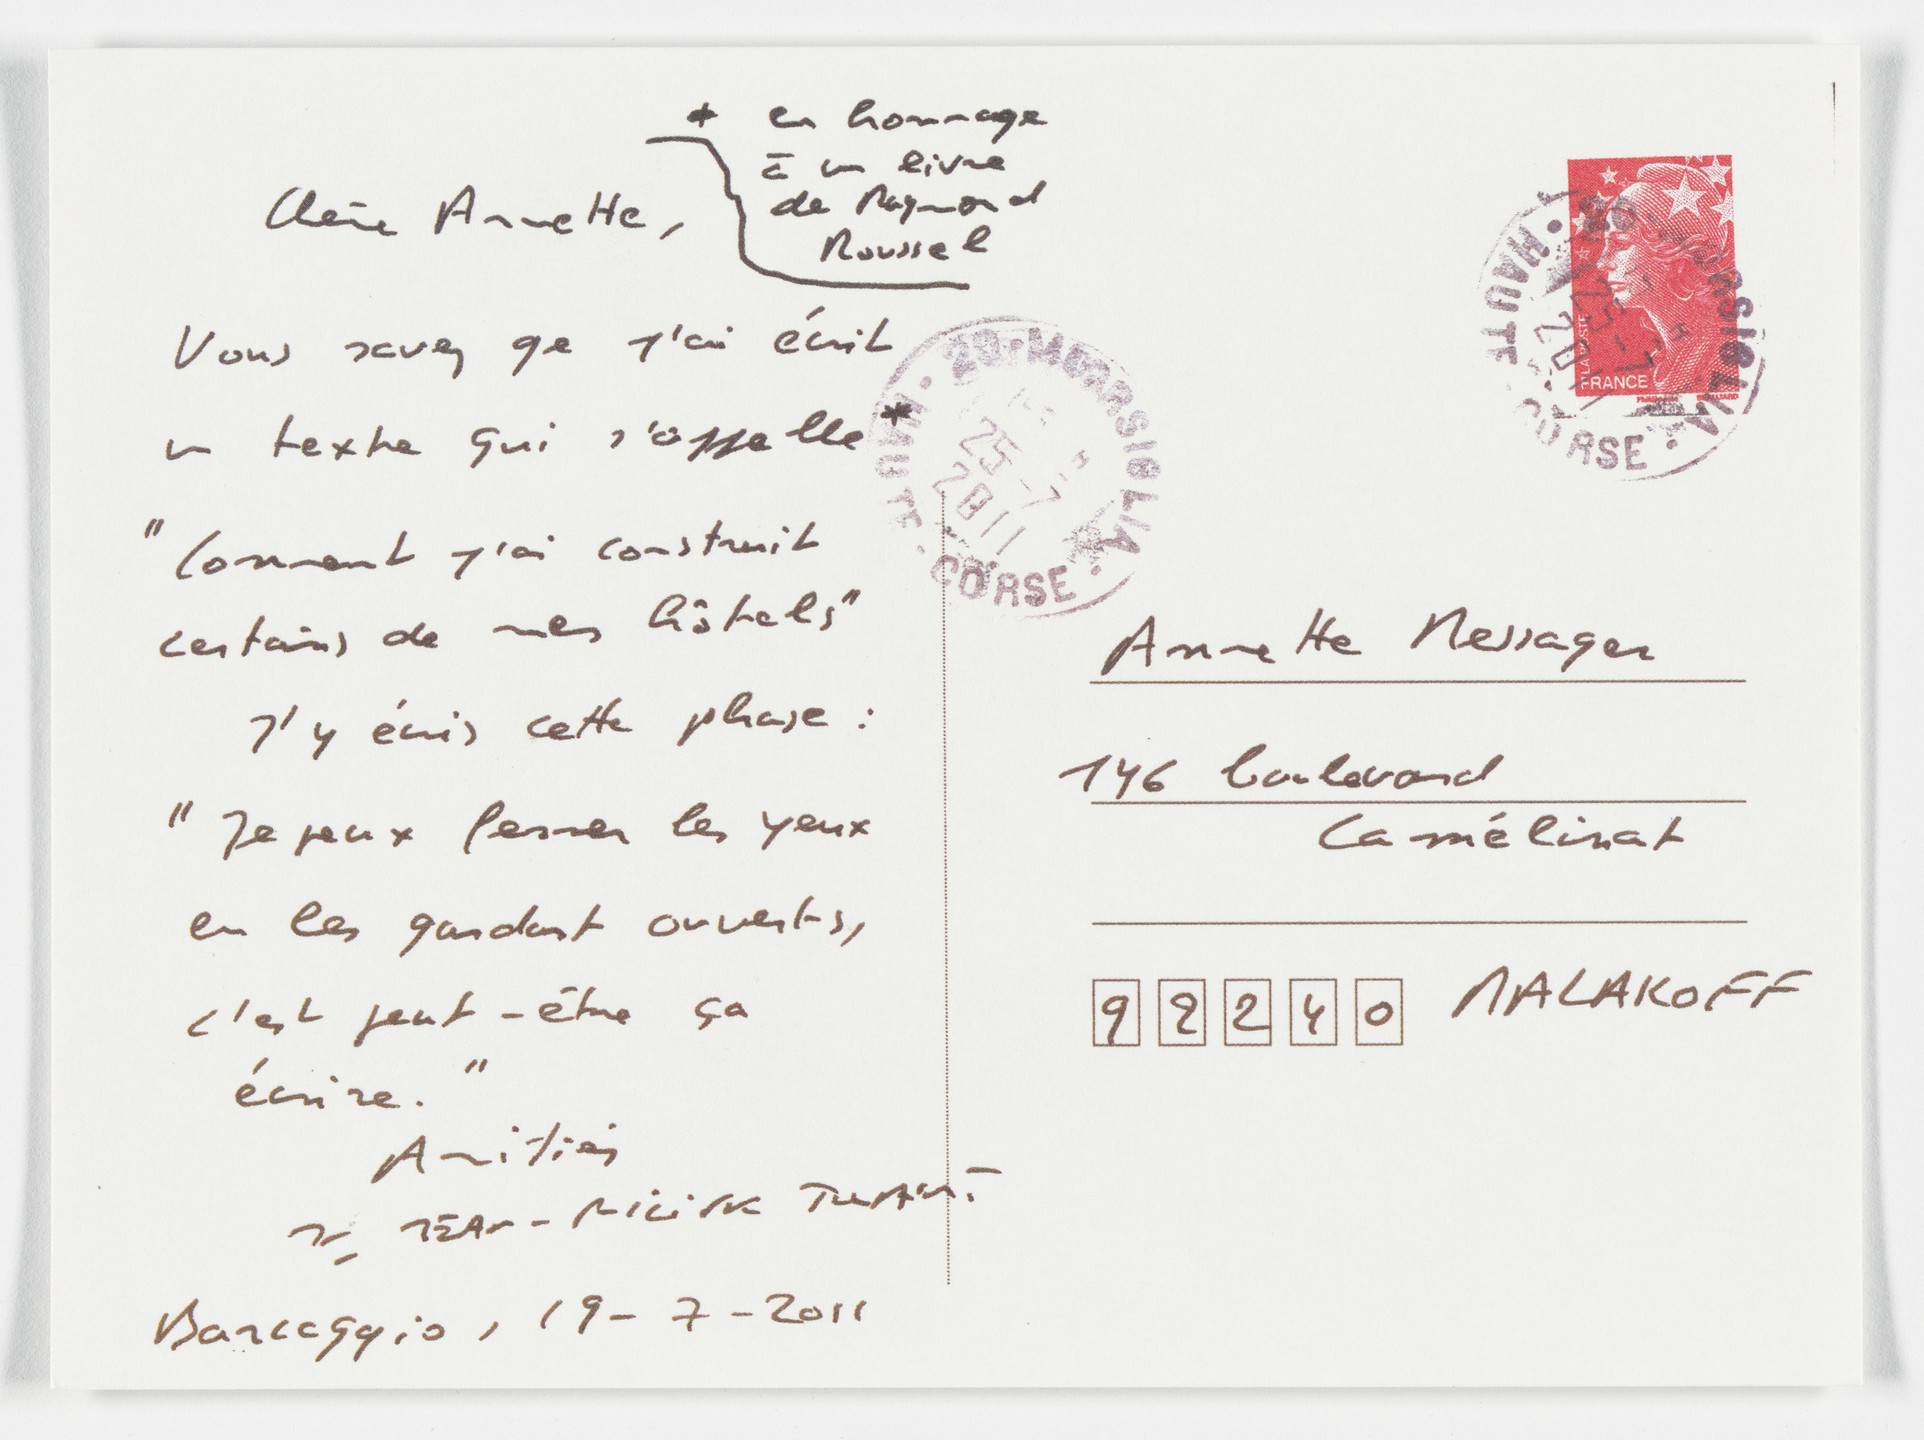 * en hommage
à un livre
de Raymond
Roussel
Chère Annette,
Vous savez qe j'ai écrit
un texte qui s'appelle *
"Comment j'ai construit
certains de mes hôtels"
J'y écris cette phase :
"Je peux fermer les yeux
en les gardant ouverts,
c'est peut-être ça
écrire."
Amitiés
JEAN-
Barcaggio, 19-7-2011
20-MORSIGLIA
25-7
2011
HAUTE-CORSE
FRANCE
20-MORSIGLIA
25-7
HAUTE CORSE
Annette Messager
146 boulevard
Camélinat
92240 MALAKOFF